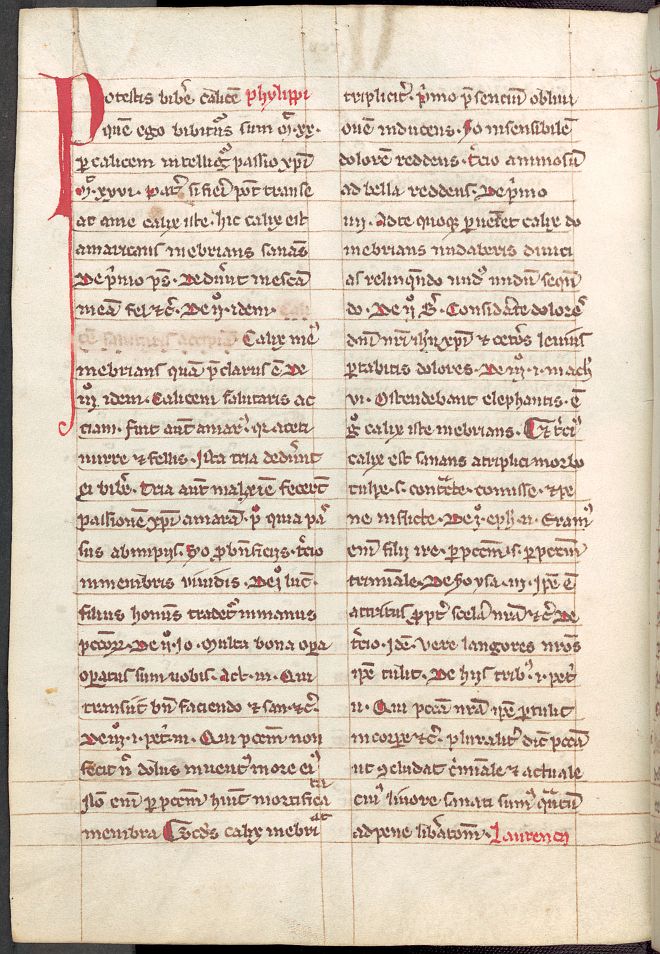 Potestis bib'e calicē phylippi
quē ego bibitur9 sum m̄. xx.
p calicem intelligr̄ passio xp̄i
m̄. xxvi. Pat' si fieri pōt transe
at a me calix iste. hic calix est
amaricans inebrians sanās
De p̄mo ps̄. Dedert̄ in escā
meā fel ⁊ c̄. De ij. idem.
Calix me9
inebrians quā p̄clarus ē De
iij idem. Calicem salutaris ac
ciam. fuit aut̄ amar9. aceti
mirre ⁊ fellis. Ista tria dedert̄
ei bib'e. Tria aut̄ fecert̄
passionē xp̄i amarā. p̊ quia pas
sus ab impiis. So pro bn̄ficiis. t'cio
in membris vividis. De luc̄.
filius homis̄ tradet̄ in manus
pcc̄or. De ij. Jo. Multa bona opa
opatus sum vobis. Act. Qui
transiit bn̄ faciendo ⁊ san. ⁊ c̄.
De iij. i. pet. ii. Qui pccm̄ non
fecit n̄ dolus invent9 in ore ei9
Nō eni p pccm̄ hūit mortifica
membra Scd̄s calix inebriat
triplicit'. p̄mo p̄sencium oblivi
onē inducens. So insensibilē
dolorē reddens. t'cio animosū
ad bella reddens. De p̄mo
iiij. Ad te quoq pveniet calix
inebriaberis diviti
as relinquendo nud9 nudū sequē
do. De ij B'. Considerate dolorē
dn̄i nr̄i ihu xp̄i ⁊ ceteros levius
portabitis dolores. De iij. i. mach
vi. Ostendebant elephantis. ē
g̊ calix iste inebrians. t'ci9
calix est sanans a triplici morbo
culpe. s. contracte. comisse. ⁊ pe
ne inflicte. De i. eph. ii. Eram9
eni filii ire. p pccm̄. s. p pccm̄
criminale. De So ysa. iii. ipse ē
attritus propt' scela nr̄a ⁊ c̄. De
t'cio. Idē. vere langores nr̄os
ipse tulit. De hijs trib9. i. pet'
ii. Qui pcc̄a nr̄a ipse ptulit
in corpe ⁊ c̄. pluralit' dicit pcc̄a
ut 9cludat c'minale ⁊ actuale
cui9 livore sanati sum9
ad pene lib'atom̄. Laurencii